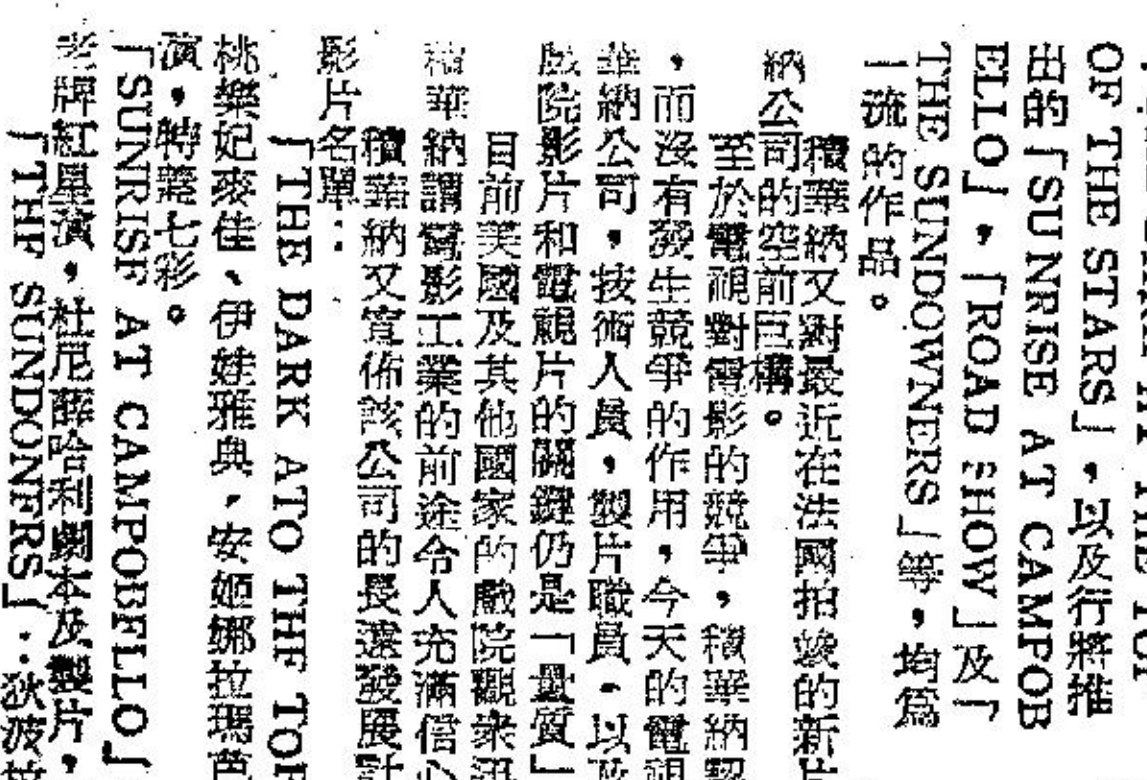 OF THE STARS」，以及行將推
出的「SUNRISE AT CAMPOB
ELLO」，「ROAD SHOW」及「
THE SUNDOWNERS」等，均爲
一流的作品。
積華納又對最近在法國拍竣的新片
納公司的空前巨構。
至於電視對電影的競爭，積華納認
，而沒有發生競爭的作用，今天的電視
華納公司，技術人員，製片職員，以及
戲院影片和電視片的關鍵仍是「量質」
目前美國及其他國家的戲院觀衆迅
積華納謂電影工業的前途令人充滿信心
積華納又宣佈該公司的長遠發展計
影片名單：
「THE DARK ATO THE TOP
桃樂妃麥佳、伊娃雅典，安姬娜拉瑪芭
演，特藝七彩。
「SUNRISE AT CAMPOBELLO」
老牌紅星演，杜尼薛哈利劇本及製片，
「THE SUNDONERS」：狄波拉